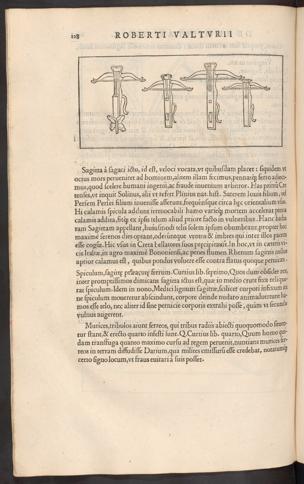 128 ROBERTI VALTVRII
Sagitta à sagaci ictu, id est, veloci vocata, vt quibusdam placet : siquidem vt
ocius mors perueniret ad hominem, alitem illam fecimus, pennasq́; ferro addidi-
mus, quod scelere humani ingenij, ac fraude inuentum arbitror. Has primũ Cre
tenses, vt inquit Solinus, alij vt refert Plinius nat. hist. Scytem Iouis filium, ad
Persem Persei filium inuenisse asserunt, frequensque circa hęc orientalium vsus.
Hi calamis spicula addunt irreuocabili hamo
calamis addita, fitq́; ex ipso telum aliud priore facto in vulneribus. Hanc
ram Sagittam appellant, huiusmodi telis solem ipsum obumbrant: propter hoc
maximè serenos dies optant, odere imbres, qui inter illos pacem
esse cogũt. Hic vsus in Creta bellatores suos
cis insitæ, in agro maximè Bononiensi, ac prope flumen Rhenum sagittis nullus
aptior calamus est, quibus pondus volucre esse contra flatus quoque
Spiculum, sagittę
inter promptissimos dimicans sagitta ictus est, quæ in medio crure fixa reliquerat
spiculum. Idem in nono, Medici lignum sagittæ, scilicet corpori infixum ita
ne spiculum moueretur abscindunt, corpore deinde nudato animaduertunt ha-
mos esse telo, nec aliter id sine pernicie corporis extrahi posse, quàm vt secando
vulnus augerent.
Murices, tribulos aiunt ferreos, qui tribus radiis abiecti quoquomodo sem-
tur stant, & erecto quarto infesti sunt. Q. Curtius lib. quarto, Quum
dam transfuga quanto maximo cursu ad regem peruenit, nuntians murices fer-
reos in terram diffudisse Darium, qua milites emissurũ esse credebat, notatumq́;
certo signo locum, vt fraus euitari à suis posset.